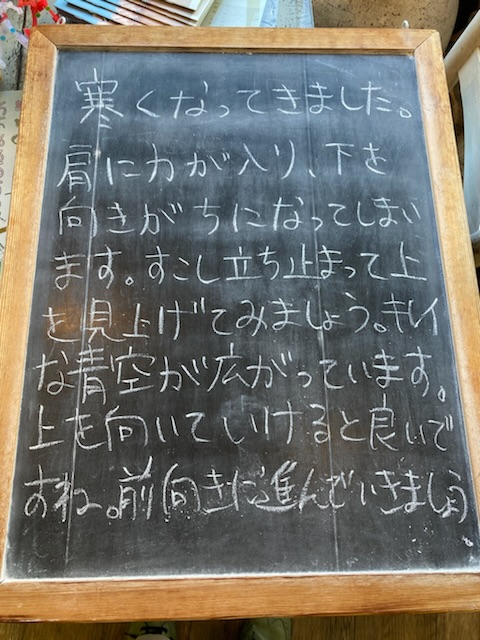 寒くなってきました。
肩に力が入り、下を
向きがちになってしまい
ます。すこし立ち止まって上
を見上げてみましょう。キレイ
な青空が広がっています。
上を向いていけると良いで
すね。前向きに進んでいきましょう